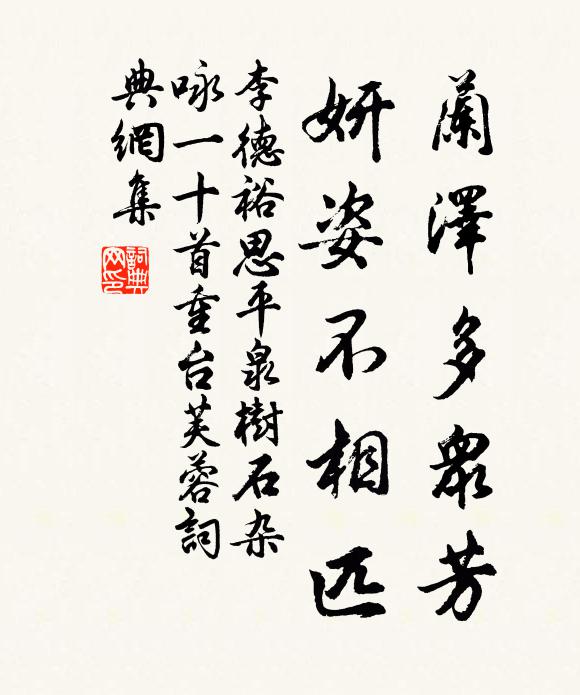 蘭澤多衆芳
妍姿不相匹
李德裕思平泉樹石杂
咏一十首重台芙蓉詞
典網集
詞典
网印